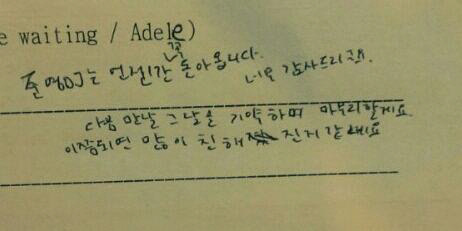 e waiting / Adele)
꼭
준영DJ는 언젠간 돌아옵니다.
너무 감사드리구요.
다음 만날 그날을 기약하며 마무리할게요.
이쯤되면 많이 친해진거 같네요